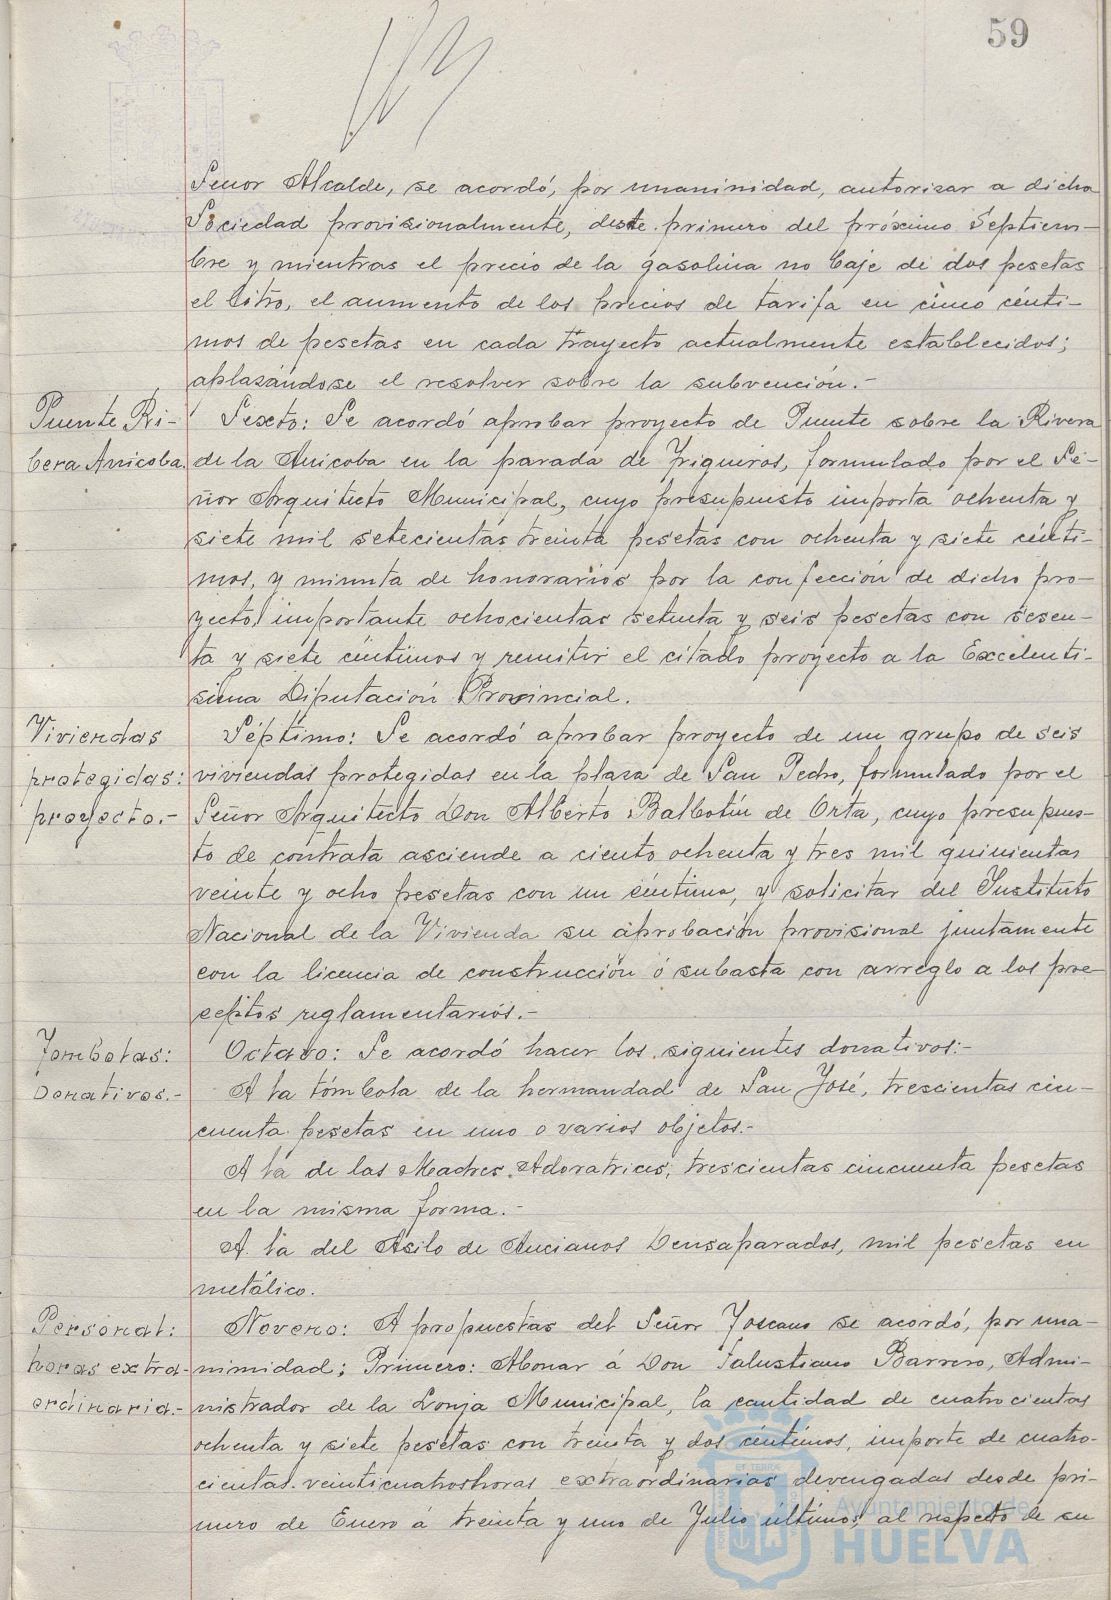 59
Señor Alcalde, se acordó, por unaninidad, autorizar a dicha
Sociedad provisionalmente, desde primero del próximo Septiem-
bre y mientras el precio de la gasolina no baje de dos pesetas
el litro, el aumento de los precios de tarifa en cinco cénti-
mos de pesetas en cada trayecto actualmente establecidos;
aplazándose el resolver sobre la subvención.-
Puente Ri-
bera Anicoba.
Sexto: Se acordó aprobar proyecto de Puente sobre la Rivera
de la Anicoba en la parada de Trigueros, formulado por el Se-
ñor Arquitecto Municipal, cuyo presupuesto importa ochenta y
siete mil setecientas treinta pesetas con ochenta y siete cénti-
mos, y minuta de honorarios por la confección de dicho pro-
yecto, importante ochocientas setenta y seis pesetas con sesen-
ta y siete céntimos y remitir el citado proyecto a la Excelentí-
sima Diputación Provincial.
Viviendas
protegidas:
proyecto.-
Séptimo: Se acordó aprobar proyecto de un grupo de seis
viviendas protegidas en la plaza de San Pedro, formulado por el
Señor Arquitecto Don Alberto Balbotín de Orta, cuyo presupues-
to de contrata asciende a ciento ochenta y tres mil quinientas
veinte y ocho pesetas con un céntimo, y solicitar del Instituto
Nacional de la Vivienda su aprobación provisional juntamente
con la licencia de construcción ó subasta con arreglo a los pre-
ceptos reglamentarios.-
Tombolas:
Donativos.-
Octavo: Se acordó hacer los siguientes donativos:-
A la tómbola de la hermandad de San José, trescientas cin-
cuenta pesetas en uno o varios objetos.-
A la de las Madres Adoratrices, trescientas cincuenta pesetas
en la misma forma.-
A la del Asilo de Ancianos Densaparados, mil pesetas en
metálico.
Personal:
horas extra-
ordinaria.-
Noveno: A propuestas del Señor Toscano se acordó, por una-
nimidad; Primero: Abonar á Don Salustiano Barrero, Admi-
nistrador de la Lonja Municipal, la cantidad de cuatrocientas
ochenta y siete pesetas con treinta y dos céntimos, importe de cuatro-
cientas veinticuatro horas extraordinarias devengadas desde pri-
mero de Enero á treinta y uno de Julio últimos, al respecto de su
Ayuntamiento de
HUELVA